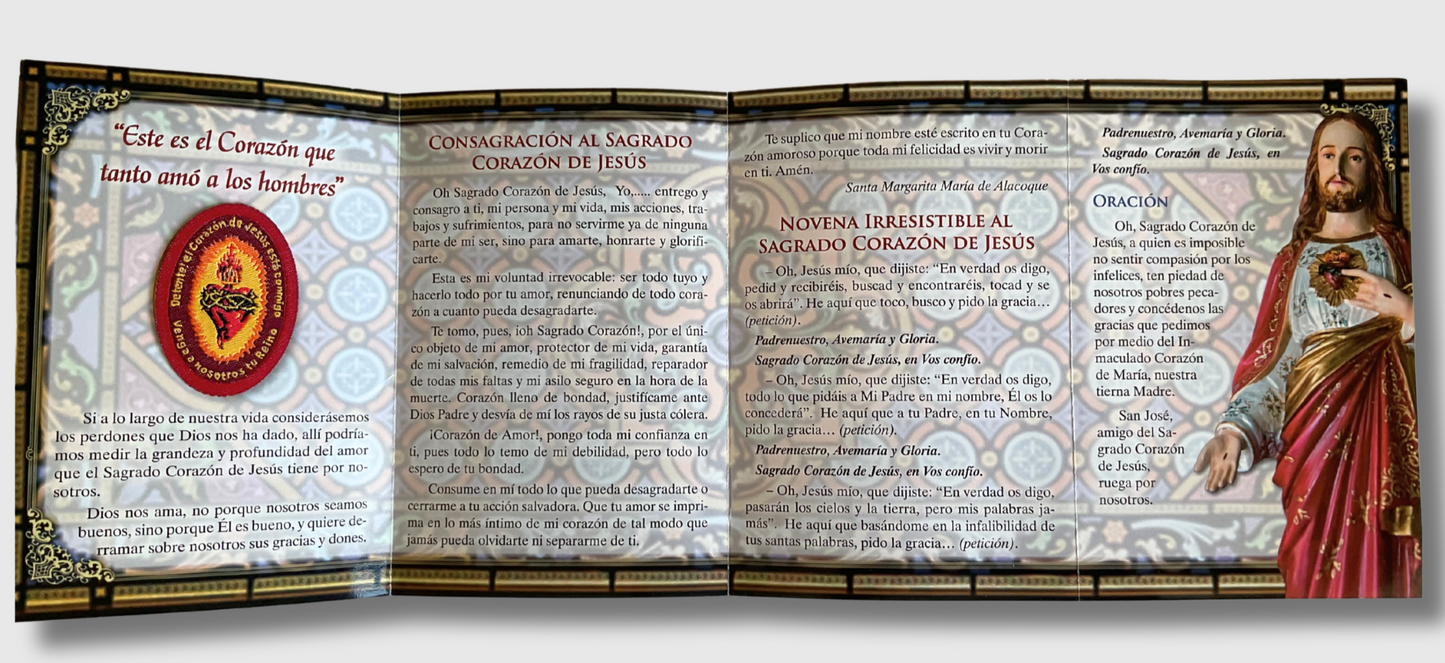 “Este es el Corazón que
tanto amó a los hombres”
Detente; el Corazón de Jesús está conmigo
Venga a nosotros tu Reino
Si a lo largo de nuestra vida considerásemos
los perdones que Dios nos ha dado, allí podría-
mos medir la grandeza y profundidad del amor
que el Sagrado Corazón de Jesús tiene por no-
sotros.
Dios nos ama, no porque nosotros seamos
buenos, sino porque Él es bueno, y quiere de-
rramar sobre nosotros sus gracias y dones.
Consagración al Sagrado
Corazón de Jesús
Oh Sagrado Corazón de Jesús, Yo,..... entrego y
consagro a ti, mi persona y mi vida, mis acciones, tra-
bajos y sufrimientos, para no servirme ya de ninguna
parte de mi ser, sino para amarte, honrarte y glorifi-
carte.
Esta es mi voluntad irrevocable: ser todo tuyo y
hacerlo todo por tu amor, renunciando de todo cora-
zón a cuanto pueda desagradarte.
Te tomo, pues, ¡oh Sagrado Corazón!, por el úni-
co objeto de mi amor, protector de mi vida, garantía
de mi salvación, remedio de mi fragilidad, reparador
de todas mis faltas y mi asilo seguro en la hora de la
muerte. Corazón lleno de bondad, justifícame ante
Dios Padre y desvía de mí los rayos de su justa cólera.
¡Corazón de Amor!, pongo toda mi confianza en
ti, pues todo lo temo de mi debilidad, pero todo lo
espero de tu bondad.
Consume en mí todo lo que pueda desagradarte o
cerrarme a tu acción salvadora. Que tu amor se impri-
ma en lo más íntimo de mi corazón de tal modo que
jamás pueda olvidarte ni separarme de ti.
Te suplico que mi nombre esté escrito en tu Cora-
zón amoroso porque toda mi felicidad es vivir y morir
en ti. Amén.
Santa Margarita María de Alacoque
Novena Irresistible al
Sagrado Corazón de Jesús
– Oh, Jesús mío, que dijiste: “En verdad os digo,
pedid y recibiréis, buscad y encontraréis, tocad y se
os abrirá”. He aquí que toco, busco y pido la gracia…
(petición).
Padrenuestro, Avemaría y Gloria.
Sagrado Corazón de Jesús, en Vos confío.
– Oh, Jesús mío, que dijiste: “En verdad os digo,
todo lo que pidáis a Mi Padre en mi nombre, Él os lo
concederá”. He aquí que a tu Padre, en tu Nombre,
pido la gracia… (petición).
Padrenuestro, Avemaría y Gloria.
Sagrado Corazón de Jesús, en Vos confío.
– Oh, Jesús mío, que dijiste: “En verdad os digo,
pasarán los cielos y la tierra, pero mis palabras ja-
más”. He aquí que basándome en la infalibilidad de
tus santas palabras, pido la gracia… (petición).
Padrenuestro, Avemaría y Gloria.
Sagrado Corazón de Jesús, en
Vos confío.
Oración
Oh, Sagrado Corazón de
Jesús, a quien es imposible
no sentir compasión por los
infelices, ten piedad de
nosotros pobres peca-
dores y concédenos las
gracias que pedimos
por medio del In-
maculado Corazón
de María, nuestra
tierna Madre.
San José,
amigo del Sa-
grado Corazón
de Jesús,
ruega por
nosotros.